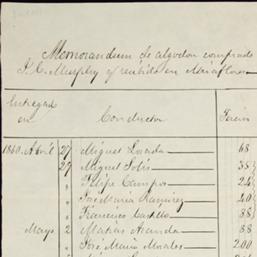 Memorandum de algodon comprado
J. C. Murphy y recibido en Miraflores
Entregas en Conductor Tercios
1860 Abril 27 Miguel Losada 68
" 27 Miguel Solis 35
" Felipe Campos 24
" José Maria Ramirez 40
" Francisco Castillo 88
Mayo 2 Matias Aranda 88
" José Maria Morales 200